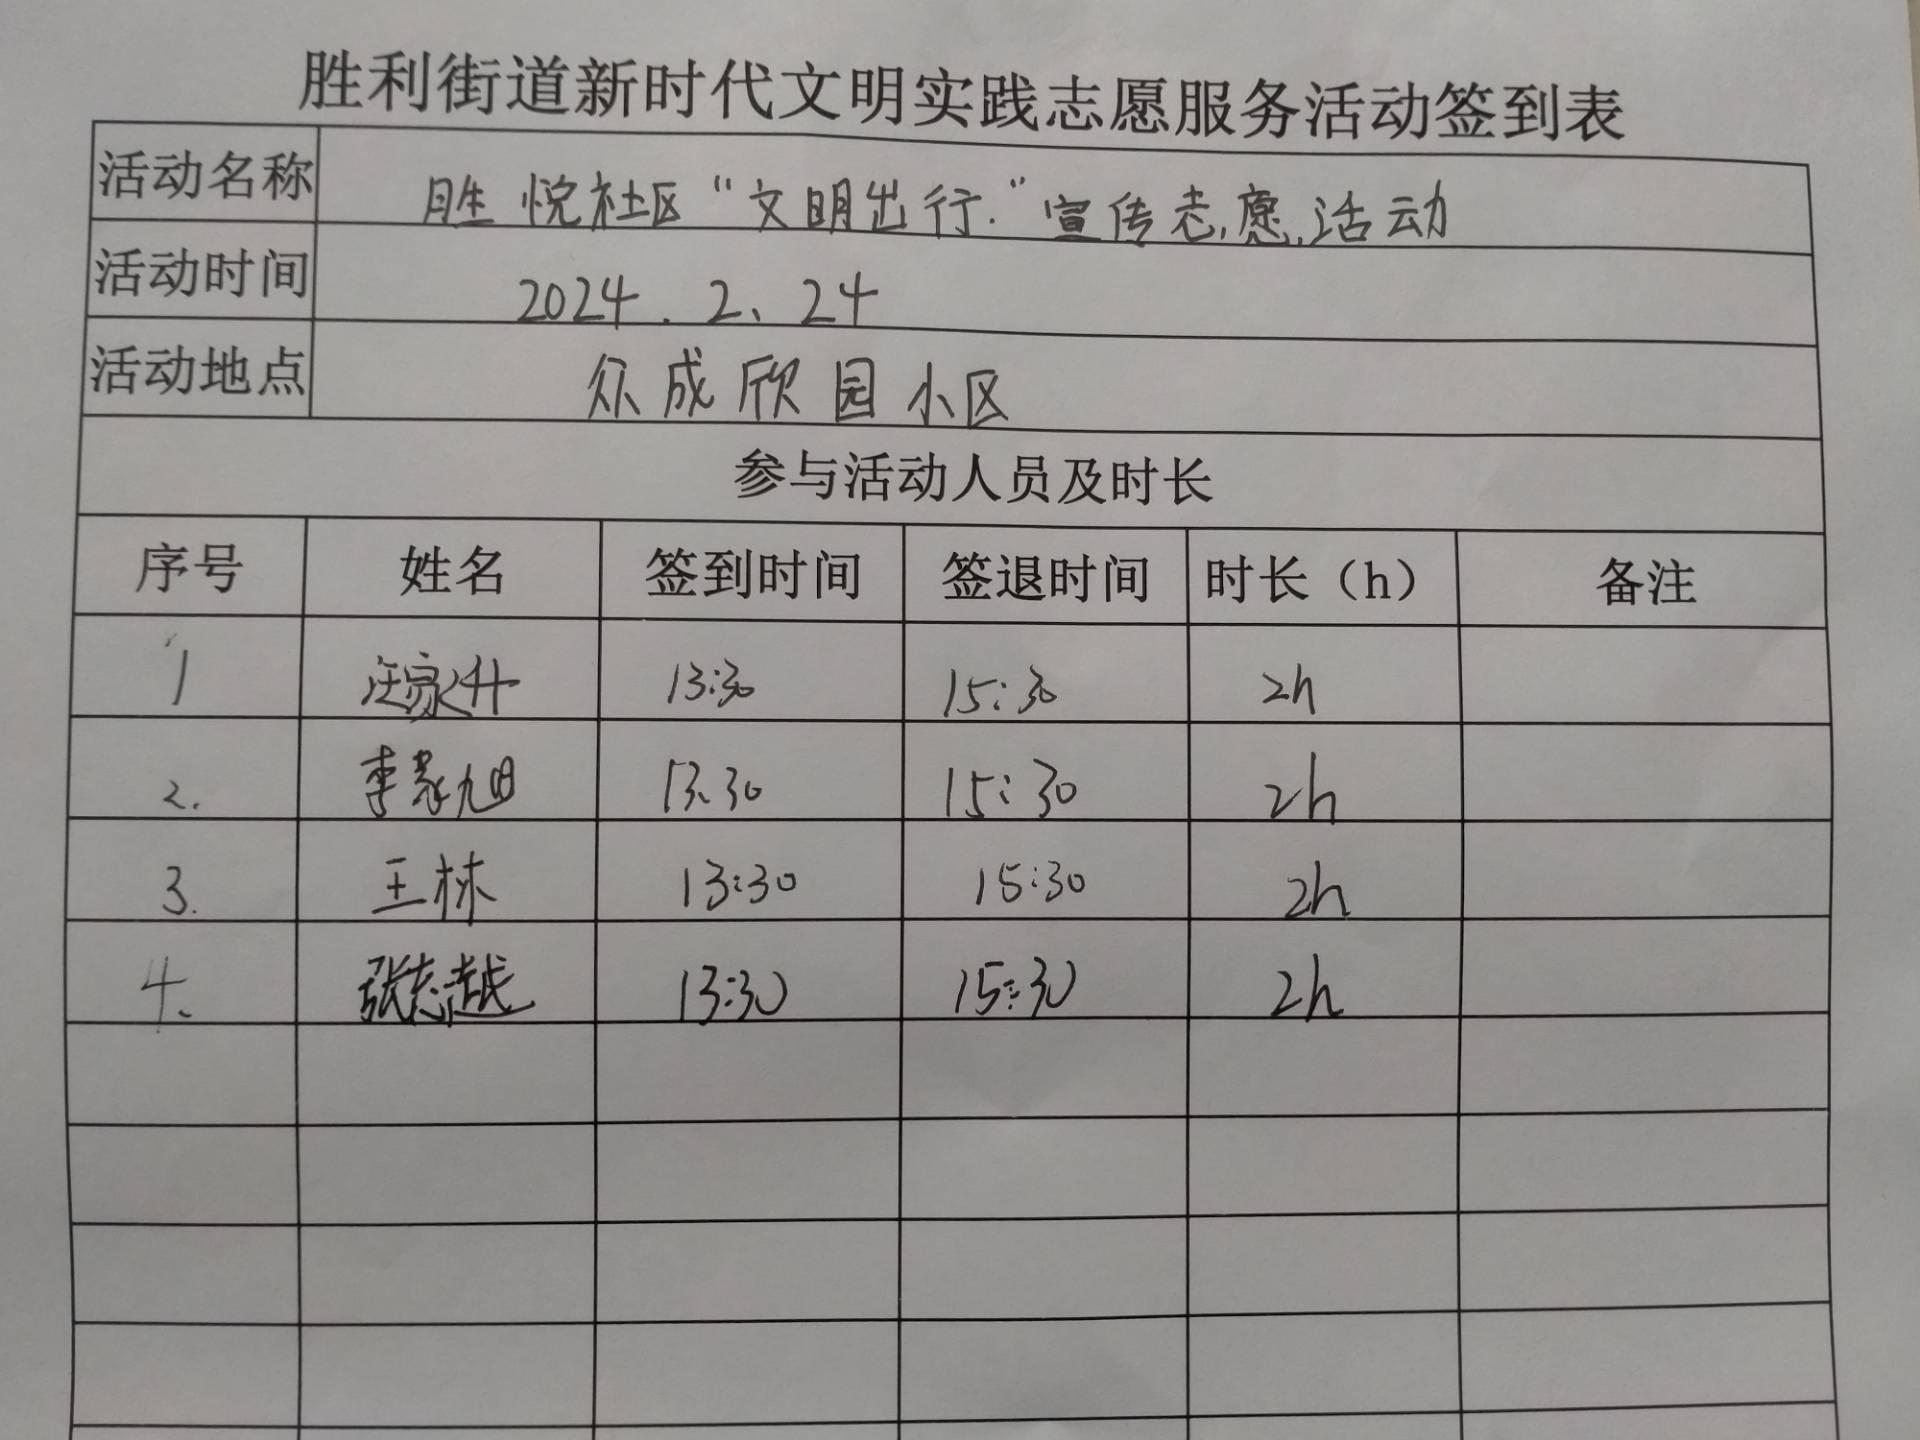 胜利街道新时代文明实践志愿服务活动签到表
活动名称 胜悦社区“文明出行.”宣传志愿活动
活动时间 2024.2、24
活动地点 众成欣园小区
参与活动人员及时长
序号 姓名 签到时间 签退时间 时长（h） 备注
1 汪家升 13:30 15:30 2h
2. 李孝旭 13:30 15:30 2h
3. 王林 13:30 15:30 2h
4. 张志越 13:30 15:30 2h